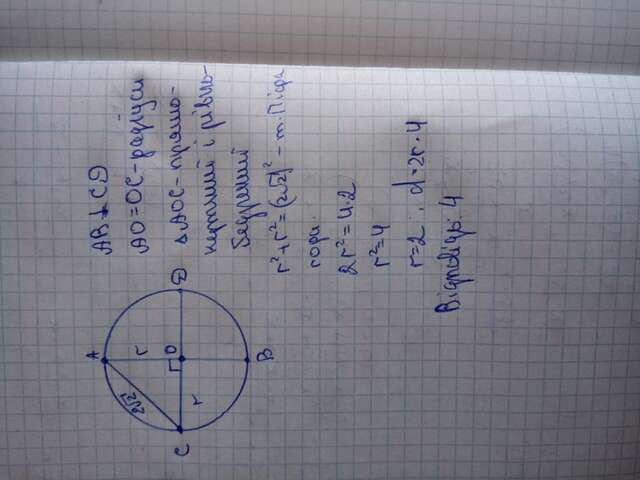 A
2√2
r
O
r
C
D
B
AB ⊥ CD
AO = OC - радіуси
△AOC - прямо-
кутний і рівно-
бедрений
r² + r² = (2√2)² - т. Піфа
гора.
2r² = 4·2
r² = 4
r = 2 ; d = 2r = 4
Відповідь: 4